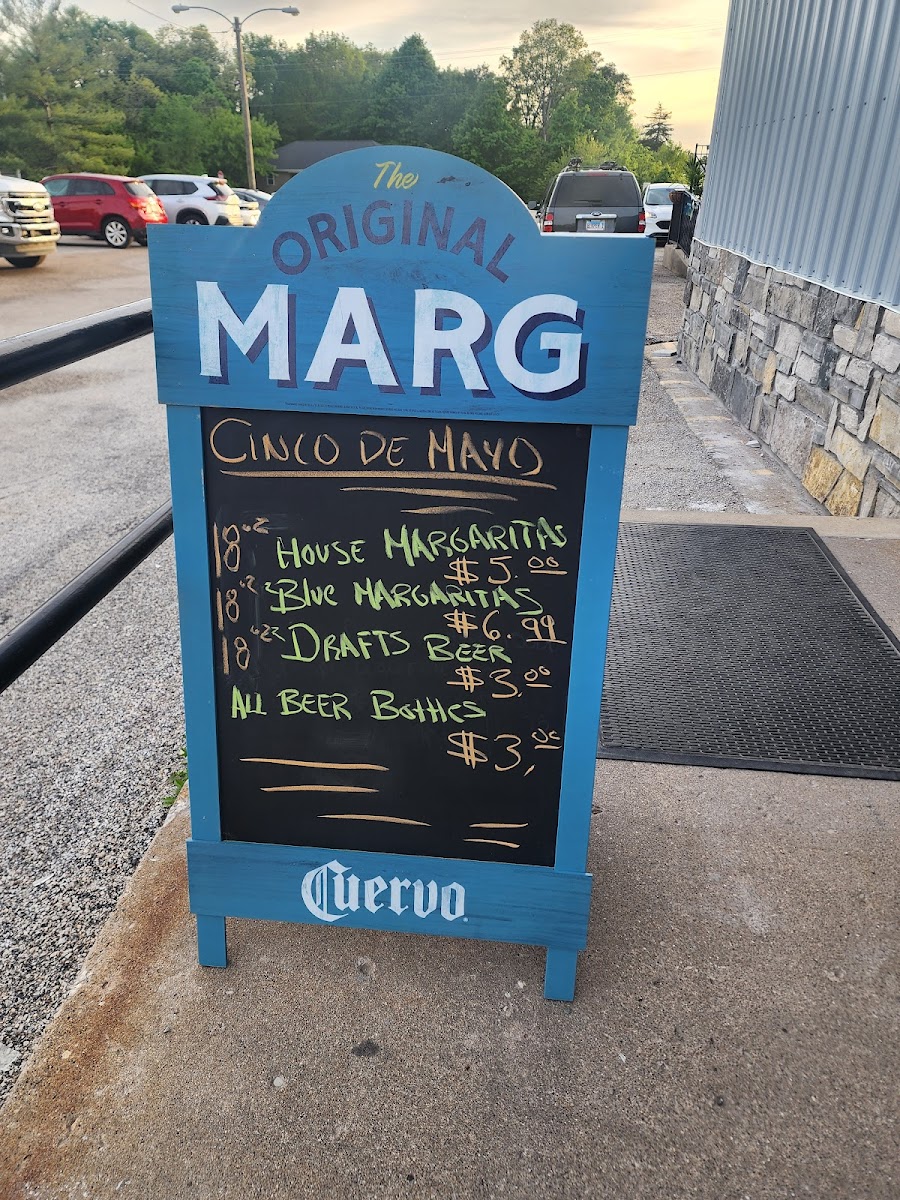 The
ORIGINAL
MARG
CINCO DE MAYO
18oz HOUSE MARGARITAS
$5.00
18oz BLUE MARGARITAS
$6.99
18oz DRAFTS BEER
$3.00
ALL BEER BOTTLES
$3.00
Cuervo